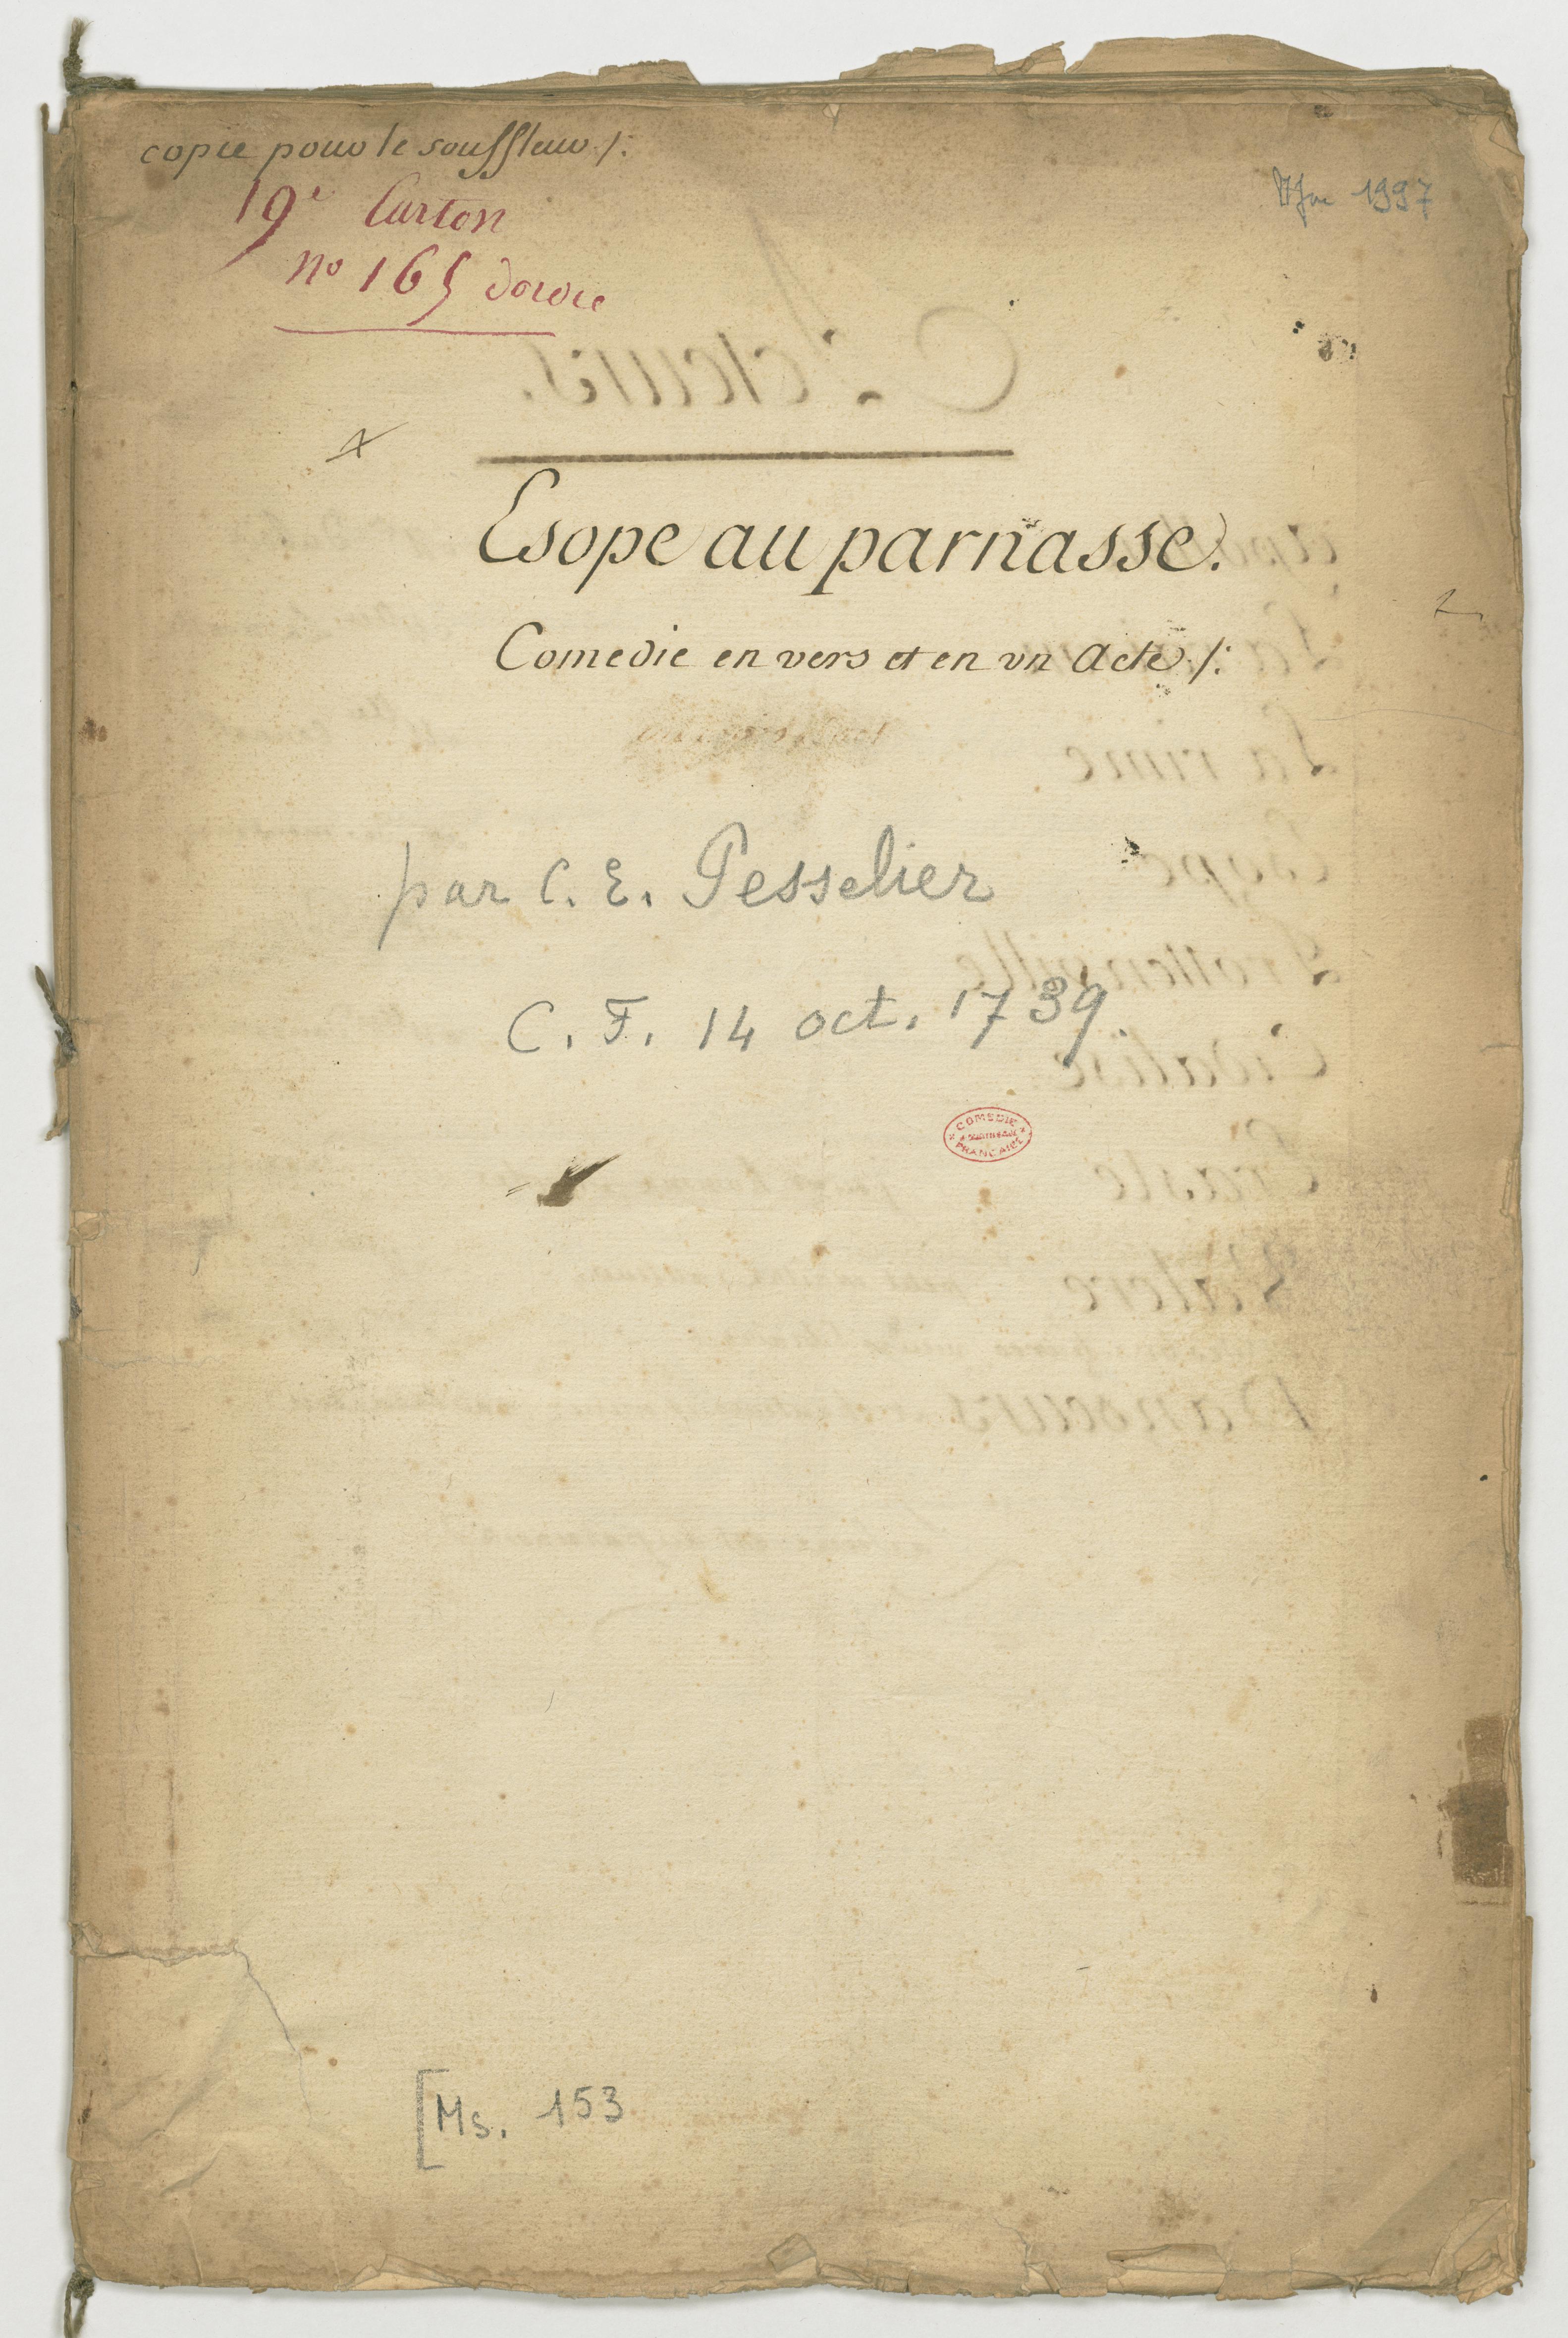 copie pour le souffleur /:
19e Carton
no 165 dordre
1997
Esope au parnasse.
Comedie en vers et en vn Acte /:
par C. E. Pesselier
C. F. 14 oct. 1739
COMEDIE
FRANCAISE
[Ms. 153